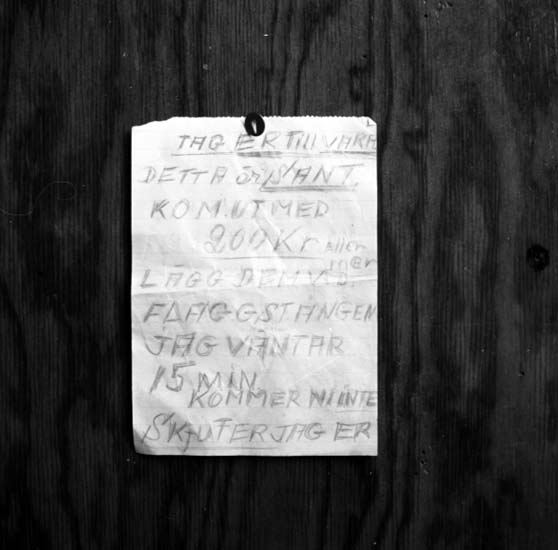 TAG ER TILL VARA
DETTA är SANT.
KOM.UT MED
200 Kr eller
mer
LÄGG DEM VID
FLAGGSTÅNGEN
JAG VÄNTAR
15 MIN.
KOMMER NI INTE
SKJUTER JAG ER